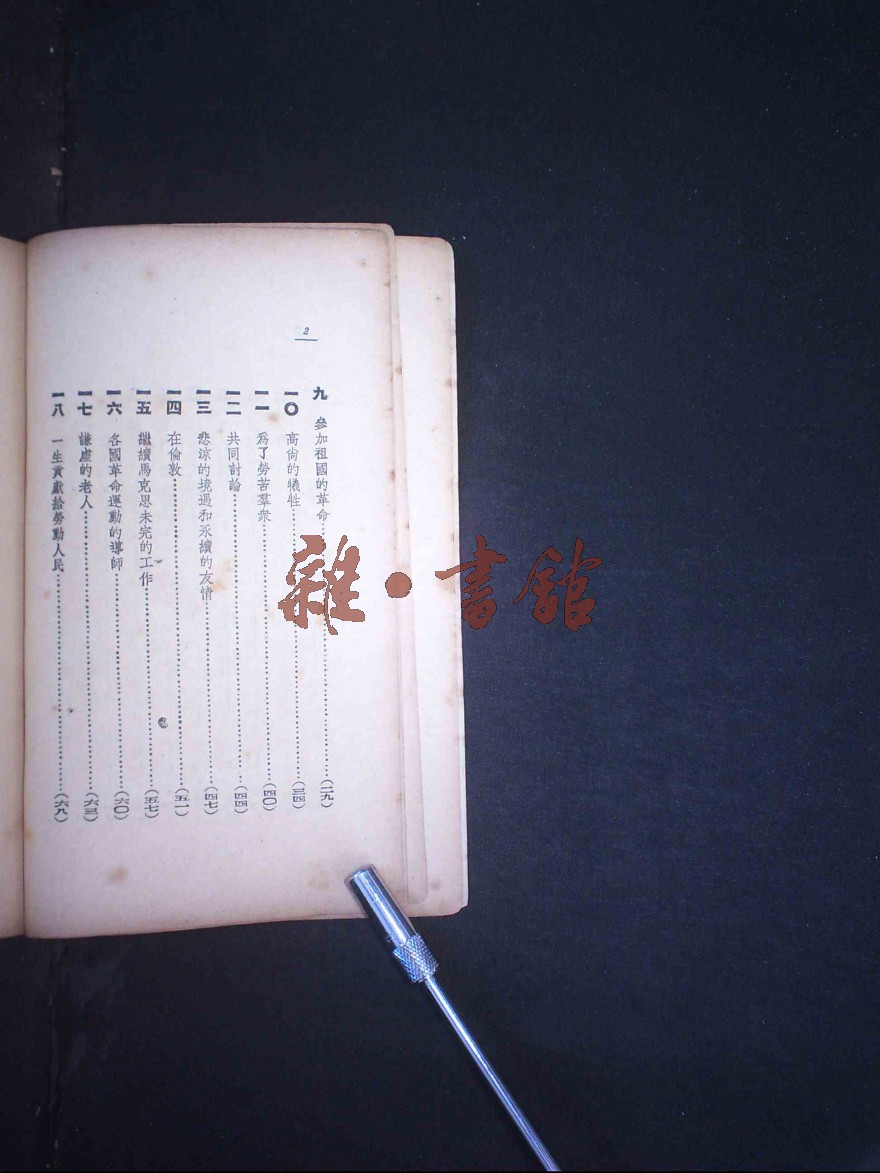 2
九 參加祖國的革命……(二九)
一〇 高尚的犧牲……(三四)
一一 爲了勞苦羣衆……(四〇)
一二 共同討論……(四四)
一三 悲涼的境遇和永續的友情……(四七)
一四 在倫敦……(五一)
一五 繼續馬克思未完的工作……(五七)
一六 各國革命運動的導師……(六〇)
一七 謙虛的老人……(六三)
一八 一生貢獻給勞動人民……(六八)
雜·書館